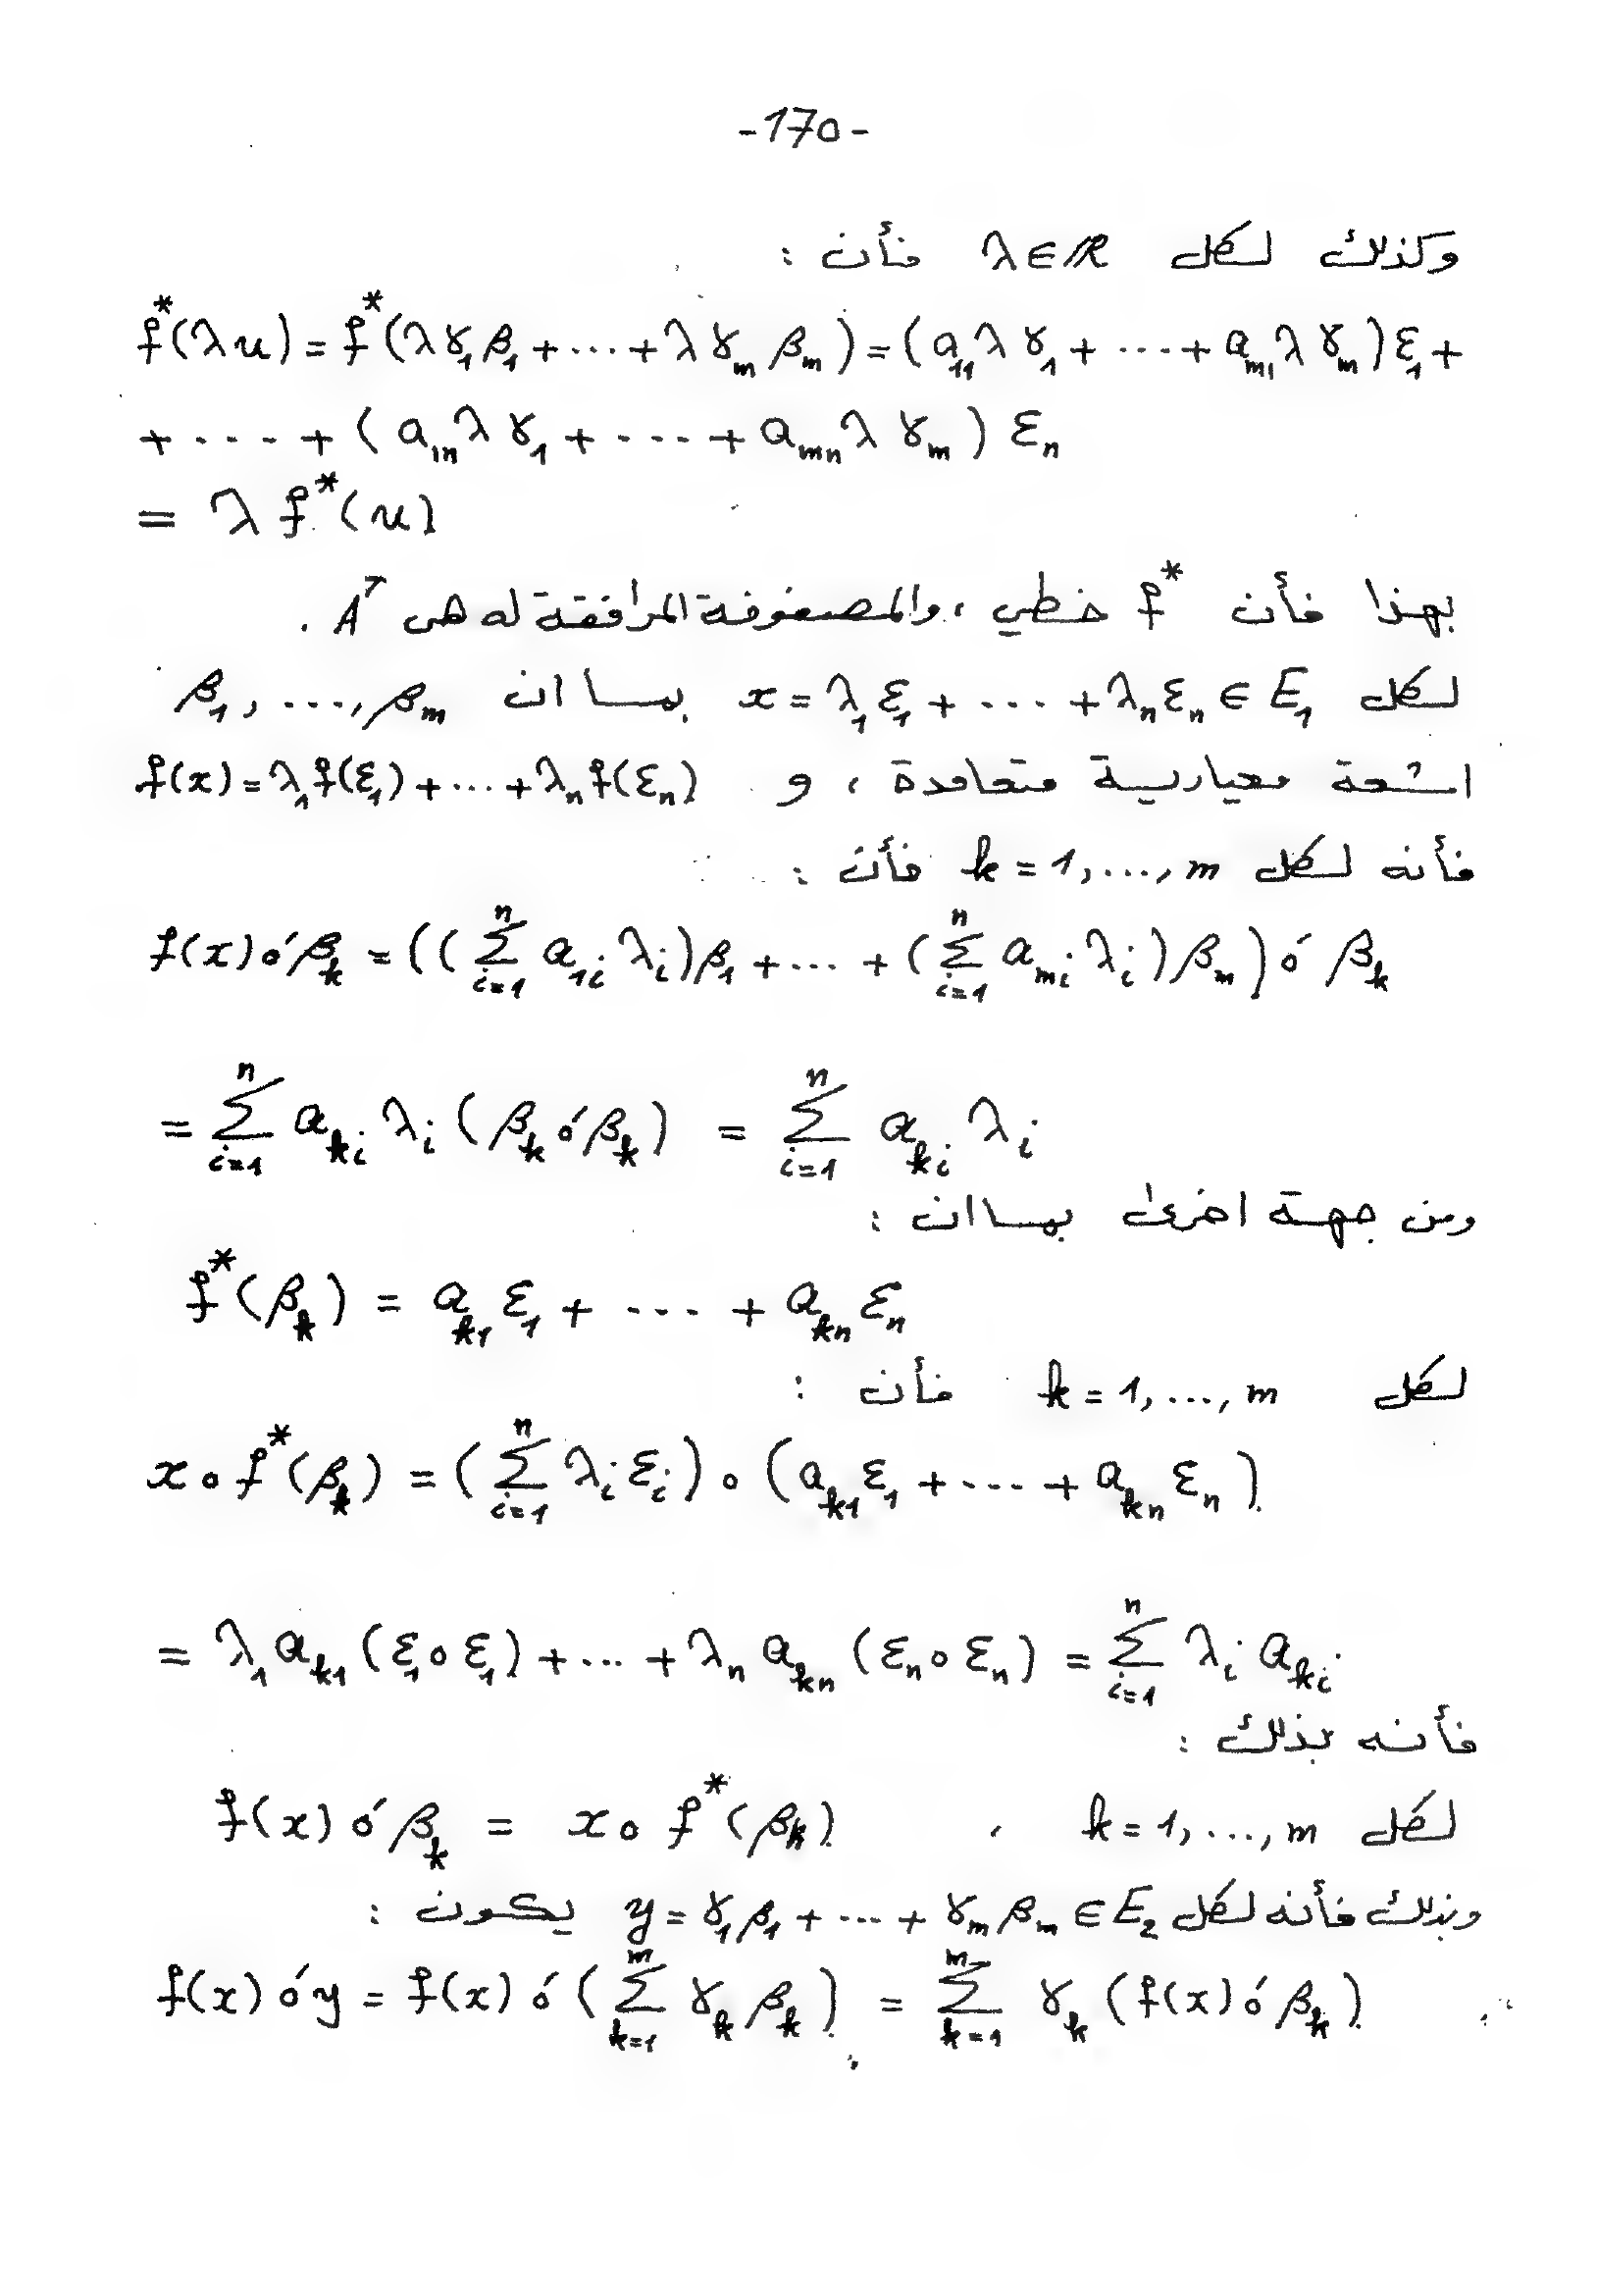 -170-
وكذلك لكل λ∈ℝ فأن :
f*(λu) = f*(λγ₁β₁+...+λγₘβₘ) = (a₁₁λγ₁+...+aₘ₁λγₘ)ε₁+
+....+(a₁ₙλγ₁+....+aₘₙλγₘ)εₙ
= λf*(u)
بهذا فأن f* خطي ، والمصفوفة المرافقة له هى Aᵀ .
لكل x=λ₁ε₁+....+λₙεₙ∈E₁ بما ان β₁,...,βₘ
اشعة معيارية متعامدة ، و f(x)=λ₁f(ε₁)+...+λₙf(εₙ)
فأنه لكل k=1,...,m فأن :
f(x)o'βₖ = ((∑ᵢ₌₁ⁿ a₁ᵢλᵢ)β₁+...+(∑ᵢ₌₁ⁿ aₘᵢλᵢ)βₘ)o'βₖ
= ∑ᵢ₌₁ⁿ aₖᵢλᵢ(βₖo'βₖ) = ∑ᵢ₌₁ⁿ aₖᵢλᵢ
ومن جهة اخرى بما ان :
f*(βₖ) = aₖ₁ε₁+...+aₖₙεₙ
لكل k=1,...,m فأن :
x∘f*(βₖ) = (∑ᵢ₌₁ⁿ λᵢεᵢ)∘(aₖ₁ε₁+...+aₖₙεₙ)
= λ₁aₖ₁(ε₁∘ε₁)+...+λₙaₖₙ(εₙ∘εₙ) = ∑ᵢ₌₁ⁿ λᵢaₖᵢ
فأنه بذلك :
لكل k=1,...,m ، f(x)o'βₖ = x∘f*(βₖ)
وبذلك فأنه لكل y=γ₁β₁+...+γₘβₘ∈E₂ يكون :
f(x)o'y = f(x)o'(∑ₖ₌₁ᵐ γₖβₖ) = ∑ₖ₌₁ᵐ γₖ(f(x)o'βₖ)